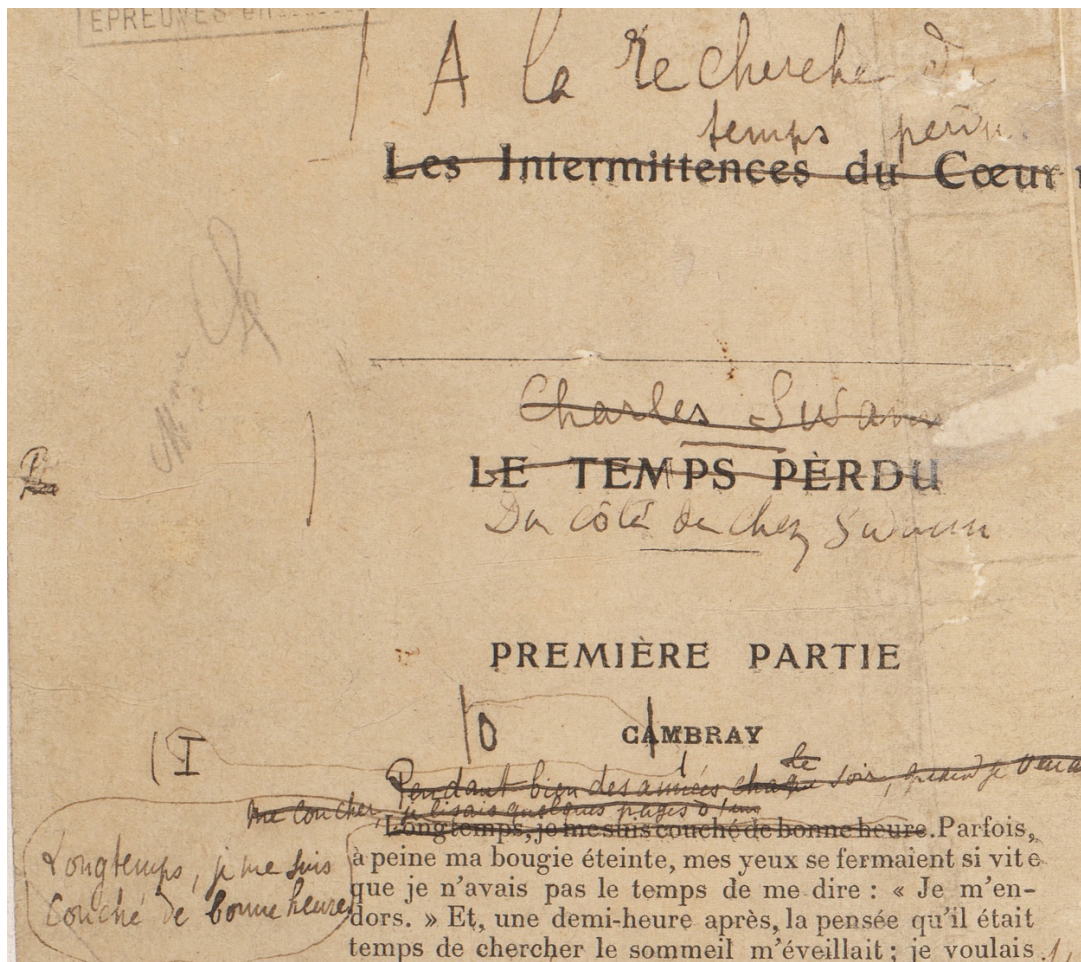 ÉPREUVES en
A la recherche du
temps perdu
Les Intermittences du Cœur
Charles Swann
LE TEMPS PERDU
Du côté de chez Swann
PREMIÈRE PARTIE
O
CAMBRAY
I
le
Pendant bien des années chaque soir, quand je venais
me coucher, je lisais quelques pages d'un
Longtemps, je me suis couché de bonne heure. Parfois,
Longtemps, je me suis
couché de bonne heure
à peine ma bougie éteinte, mes yeux se fermaient si vite
que je n'avais pas le temps de me dire : « Je m'en-
dors. » Et, une demi-heure après, la pensée qu'il était
temps de chercher le sommeil m'éveillait ; je voulais